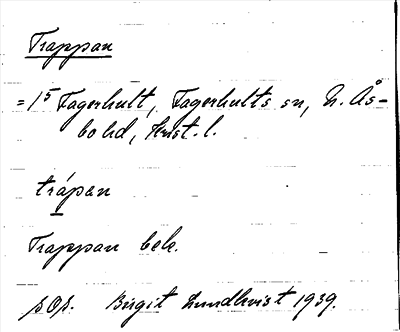 Trappan
= 1⁵ Fagerhult, Fagerhults sn, N. Ås-
bo hd, Krist. l.
trápan
Trappan bek.
p Op. Birgit Lundkvist 1939.